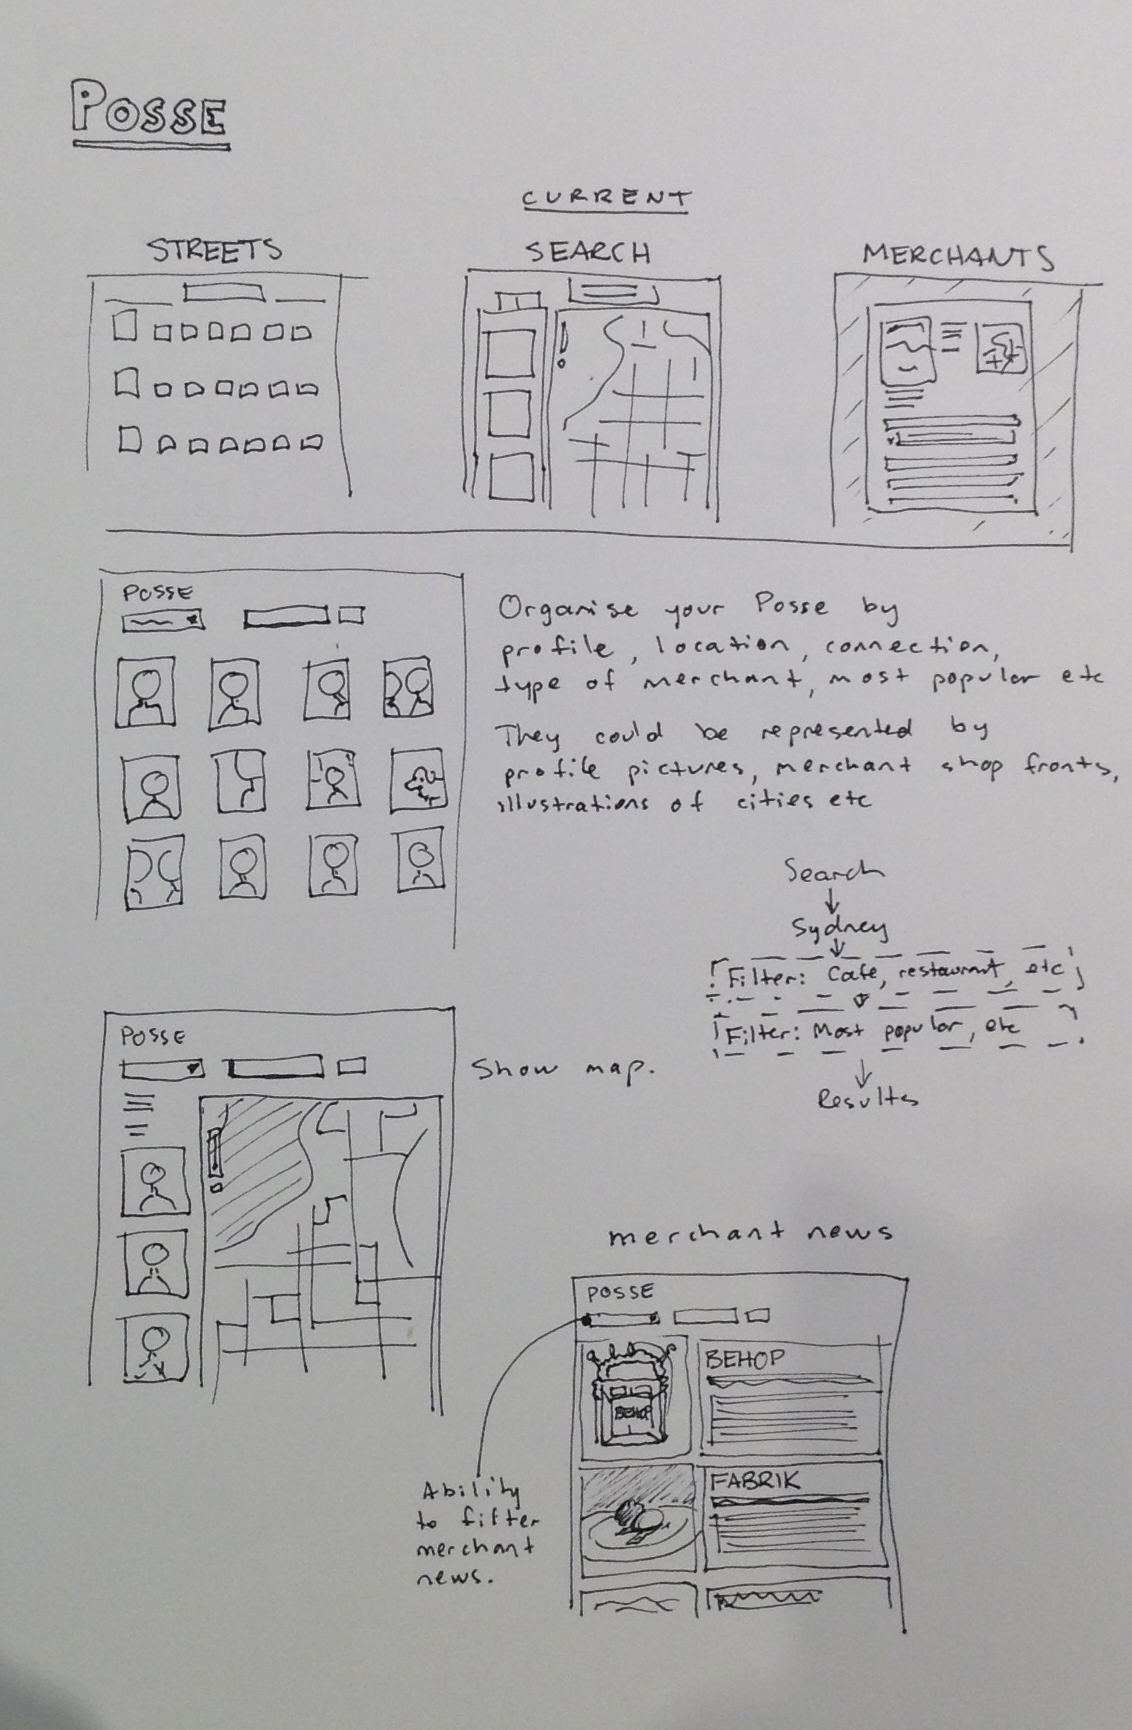 POSSE
CURRENT
STREETS
SEARCH
MERCHANTS
POSSE
Organise your Posse by
profile, location, connection,
type of merchant, most popular etc
They could be represented by
profile pictures, merchant shop fronts,
illustrations of cities etc
Search
Sydney
Filter: Cafe, restaurant, etc
Filter: Most popular, etc
Results
POSSE
Show map.
merchant news
POSSE
BEHOP
BEHOP
FABRIK
Ability
to filter
merchant
news.